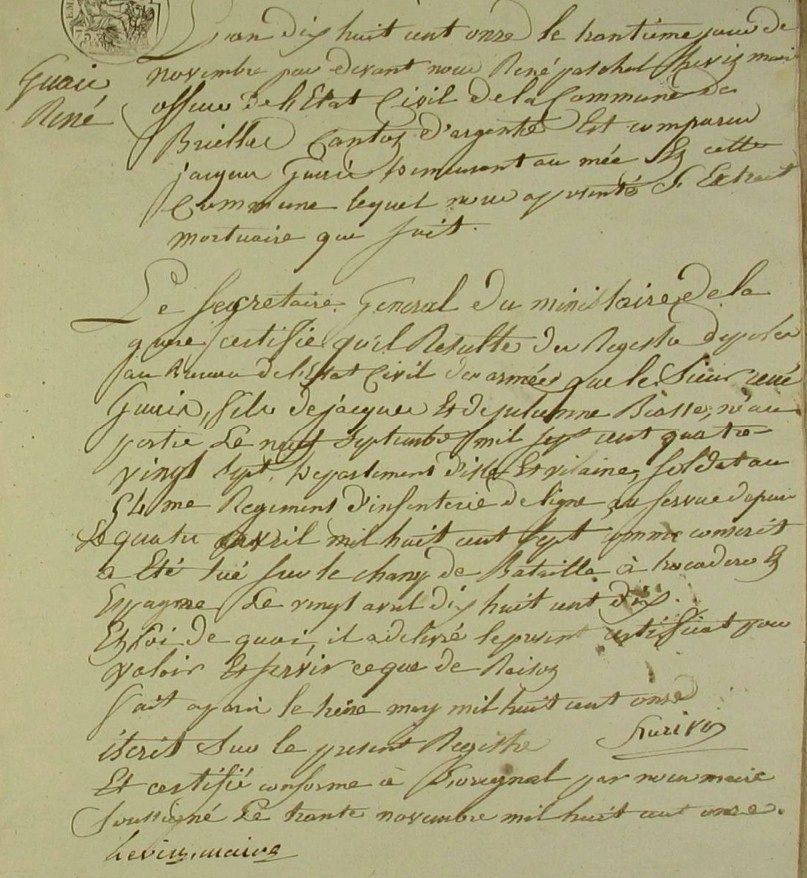 Guerie
René
L'an dix huit cent onze le trantième jour de
novembre par devant nous René paschal hevin maire
officier de l'Etat Civil de la Commune de
Brielles Canton d'argentré Est comparu
jacques Guerie demeurant au mée En cette
Commune lequel nous a présenté L'Extrait
mortuaire que suit.
Le Segretaire General du ministaire de la
guere certifie qu'il Resulte des Registre deposée
au Bureau de l'Etat Civil des armée que le Sieur rené
Guerie, fils de jacques Et de julienne né au
pertre Le neuf Septembre mil sept cent quatre
vingt Sept, Departement d'ille Et vilaine, soldat au
54 me Regiment d'infenterie de ligne au service depuis
Le quatre avril mil huit cent Sept comme conscrit
a Eté tué sur le champ de Bataille à trocadero En
Espagne Le vingt avril dix huit cent dix.
En foi de quoi, il a delivré le present certificat pour
valoir Et servir ce que de Raison
fait a paris le treize may mil huit cent onze
iscrit Sur le present Registre
Et certifié conforme à L'original par nous maire
Soussigné Le trante novembre mil huit cent onze.
hevin, maire